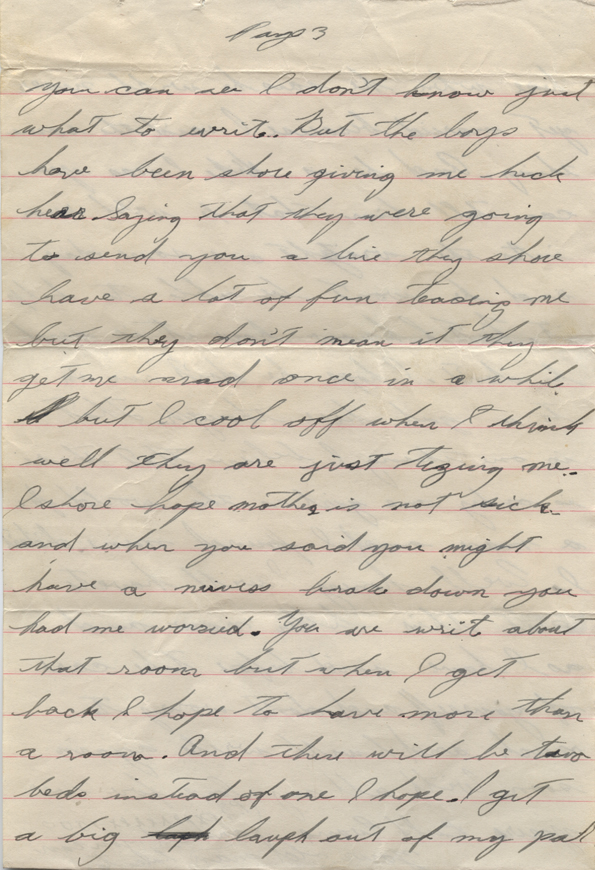 Page 3
you can see I don't know just
what to write. But the boys
have been shore giving me heck
hear Saying that they were going
to send you a line they shore
have a lot of fun teasing me
but they don't mean it they
get me mad once in a while
but I cool off when I think
well they are just tezing me.
I shore hope mother is not sick.
and when you said you might
have a nurvess brake down you
had me worried. You are writ about
that room but when I get
back I hope to have more than
a room. And there will be two
beds instead of one I hope. I get
a big laugh out of my pal